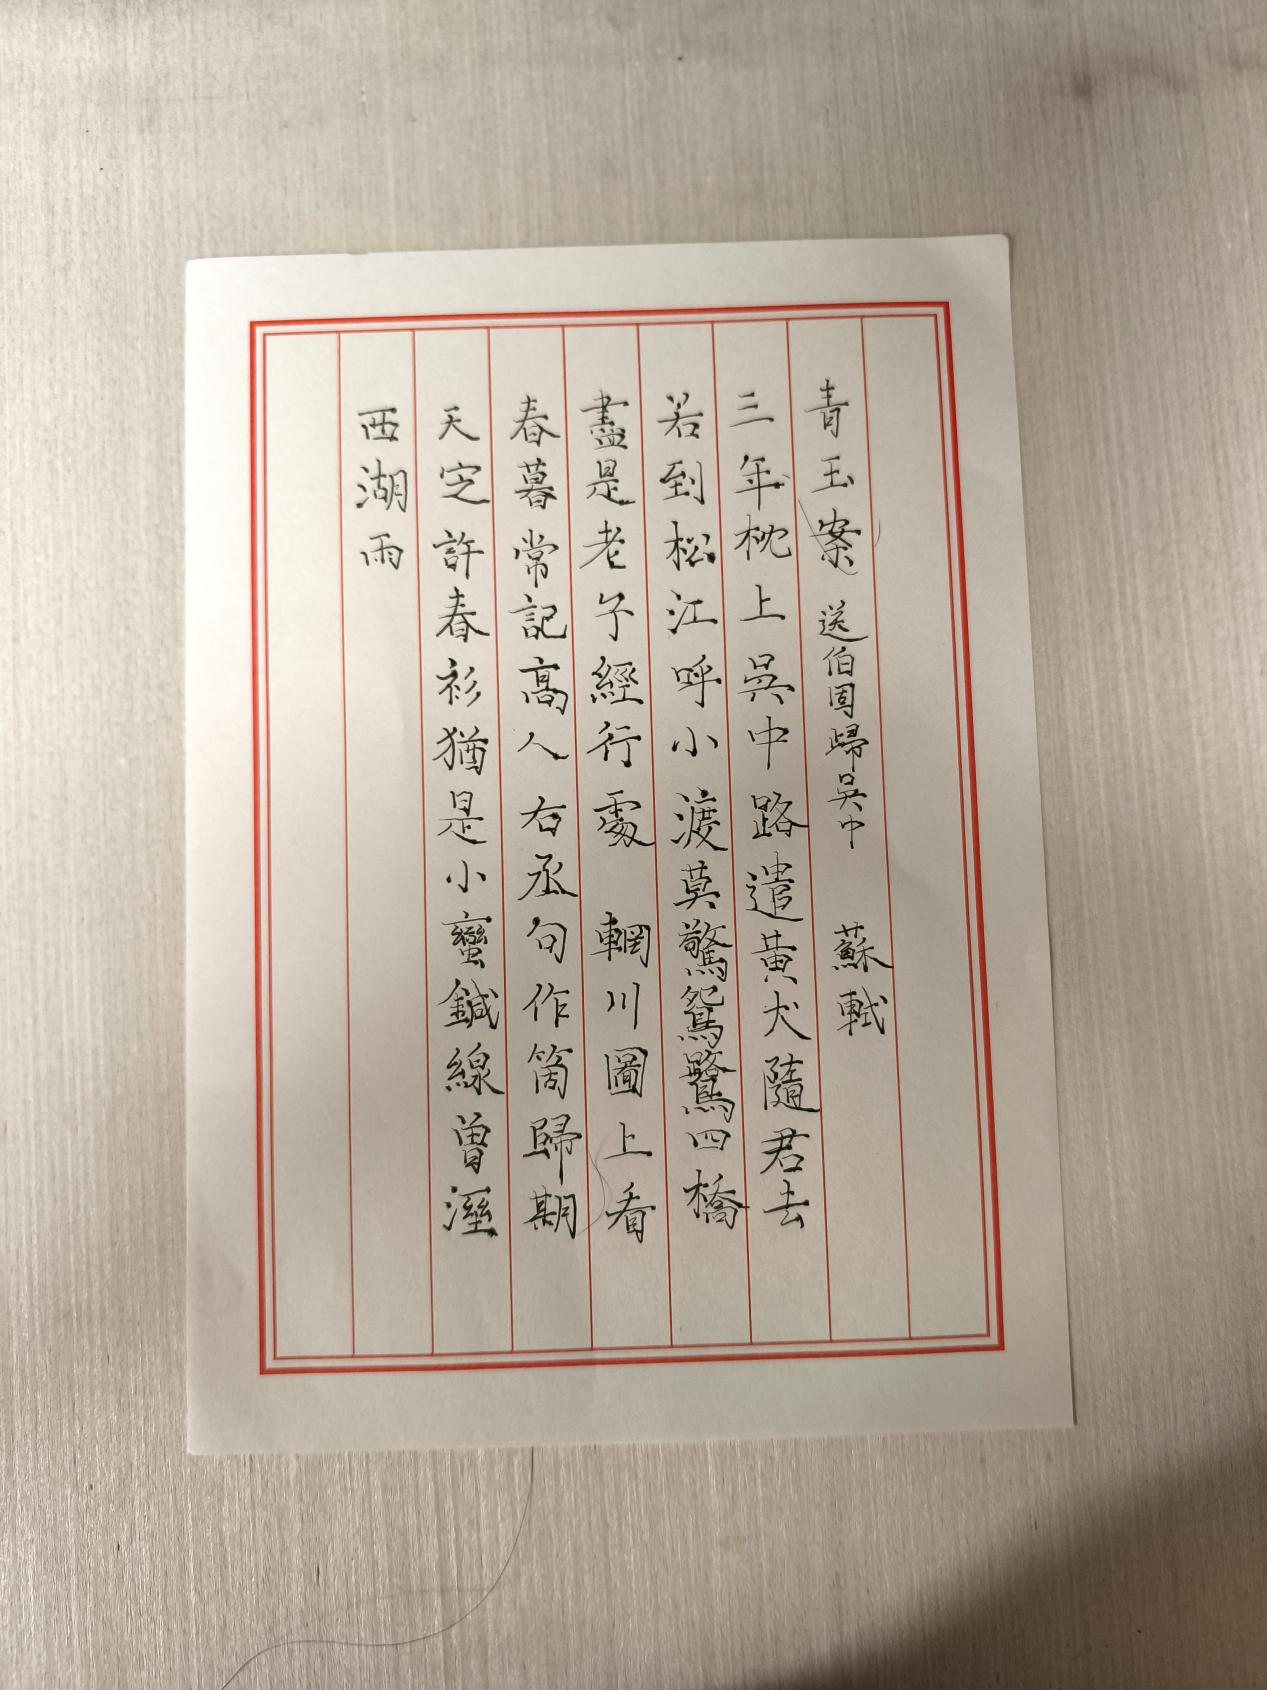 青玉案 送伯固歸吳中 蘇軾
三年枕上吳中路遣黃犬隨君去
若到松江呼小渡莫驚鴛鷺四橋
盡是老子經行處 輞川圖上看
春暮常記高人右丞句作箇歸期
天定許春衫猶是小蠻鍼線曾溼
西湖雨